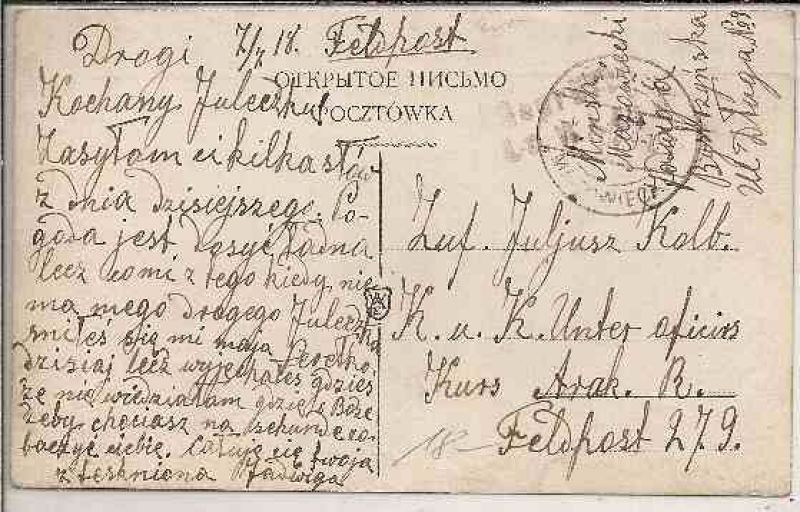 Drogi 7/7 18. Feldpost
ОТКРЫТОЕ ПИСЬМО
POCZTÓWKA
Kochany Juleczku!
Zasyłam ci kilka słów
z dnia dzisiejszego. Po-
goda jest dosyć ładna
lecz co mi z tego kiedy nie
ma mego drogego Juleczka
śniłeś się mi moja Perełko
dzisiaj lecz wyjechałeś gdzieś
że nie wiedziałam gdzie, Boże
żeby chociaż na sekundę zo-
baczyć ciebie. Całuję cię twoja
stęskniona Jadwiga
Mińsk
Mazowiecki
Jadwiga
Bystrzyńska
Ul Długa № 9
Zuf. Juljusz Kolb.
K. u. K. Unter oficirs
Kurs Arak. R.
Feldpost 279.
18